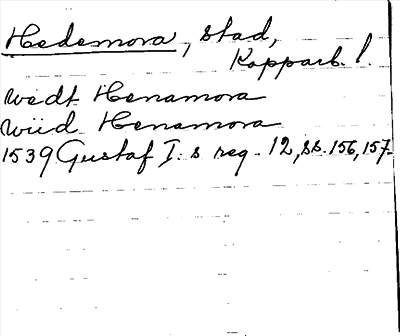 Hedemora, stad,
Kopparb. l.
wedt Henamora
wiid Henamora
1539 Gustaf I:s reg. 12, ss. 156, 157.